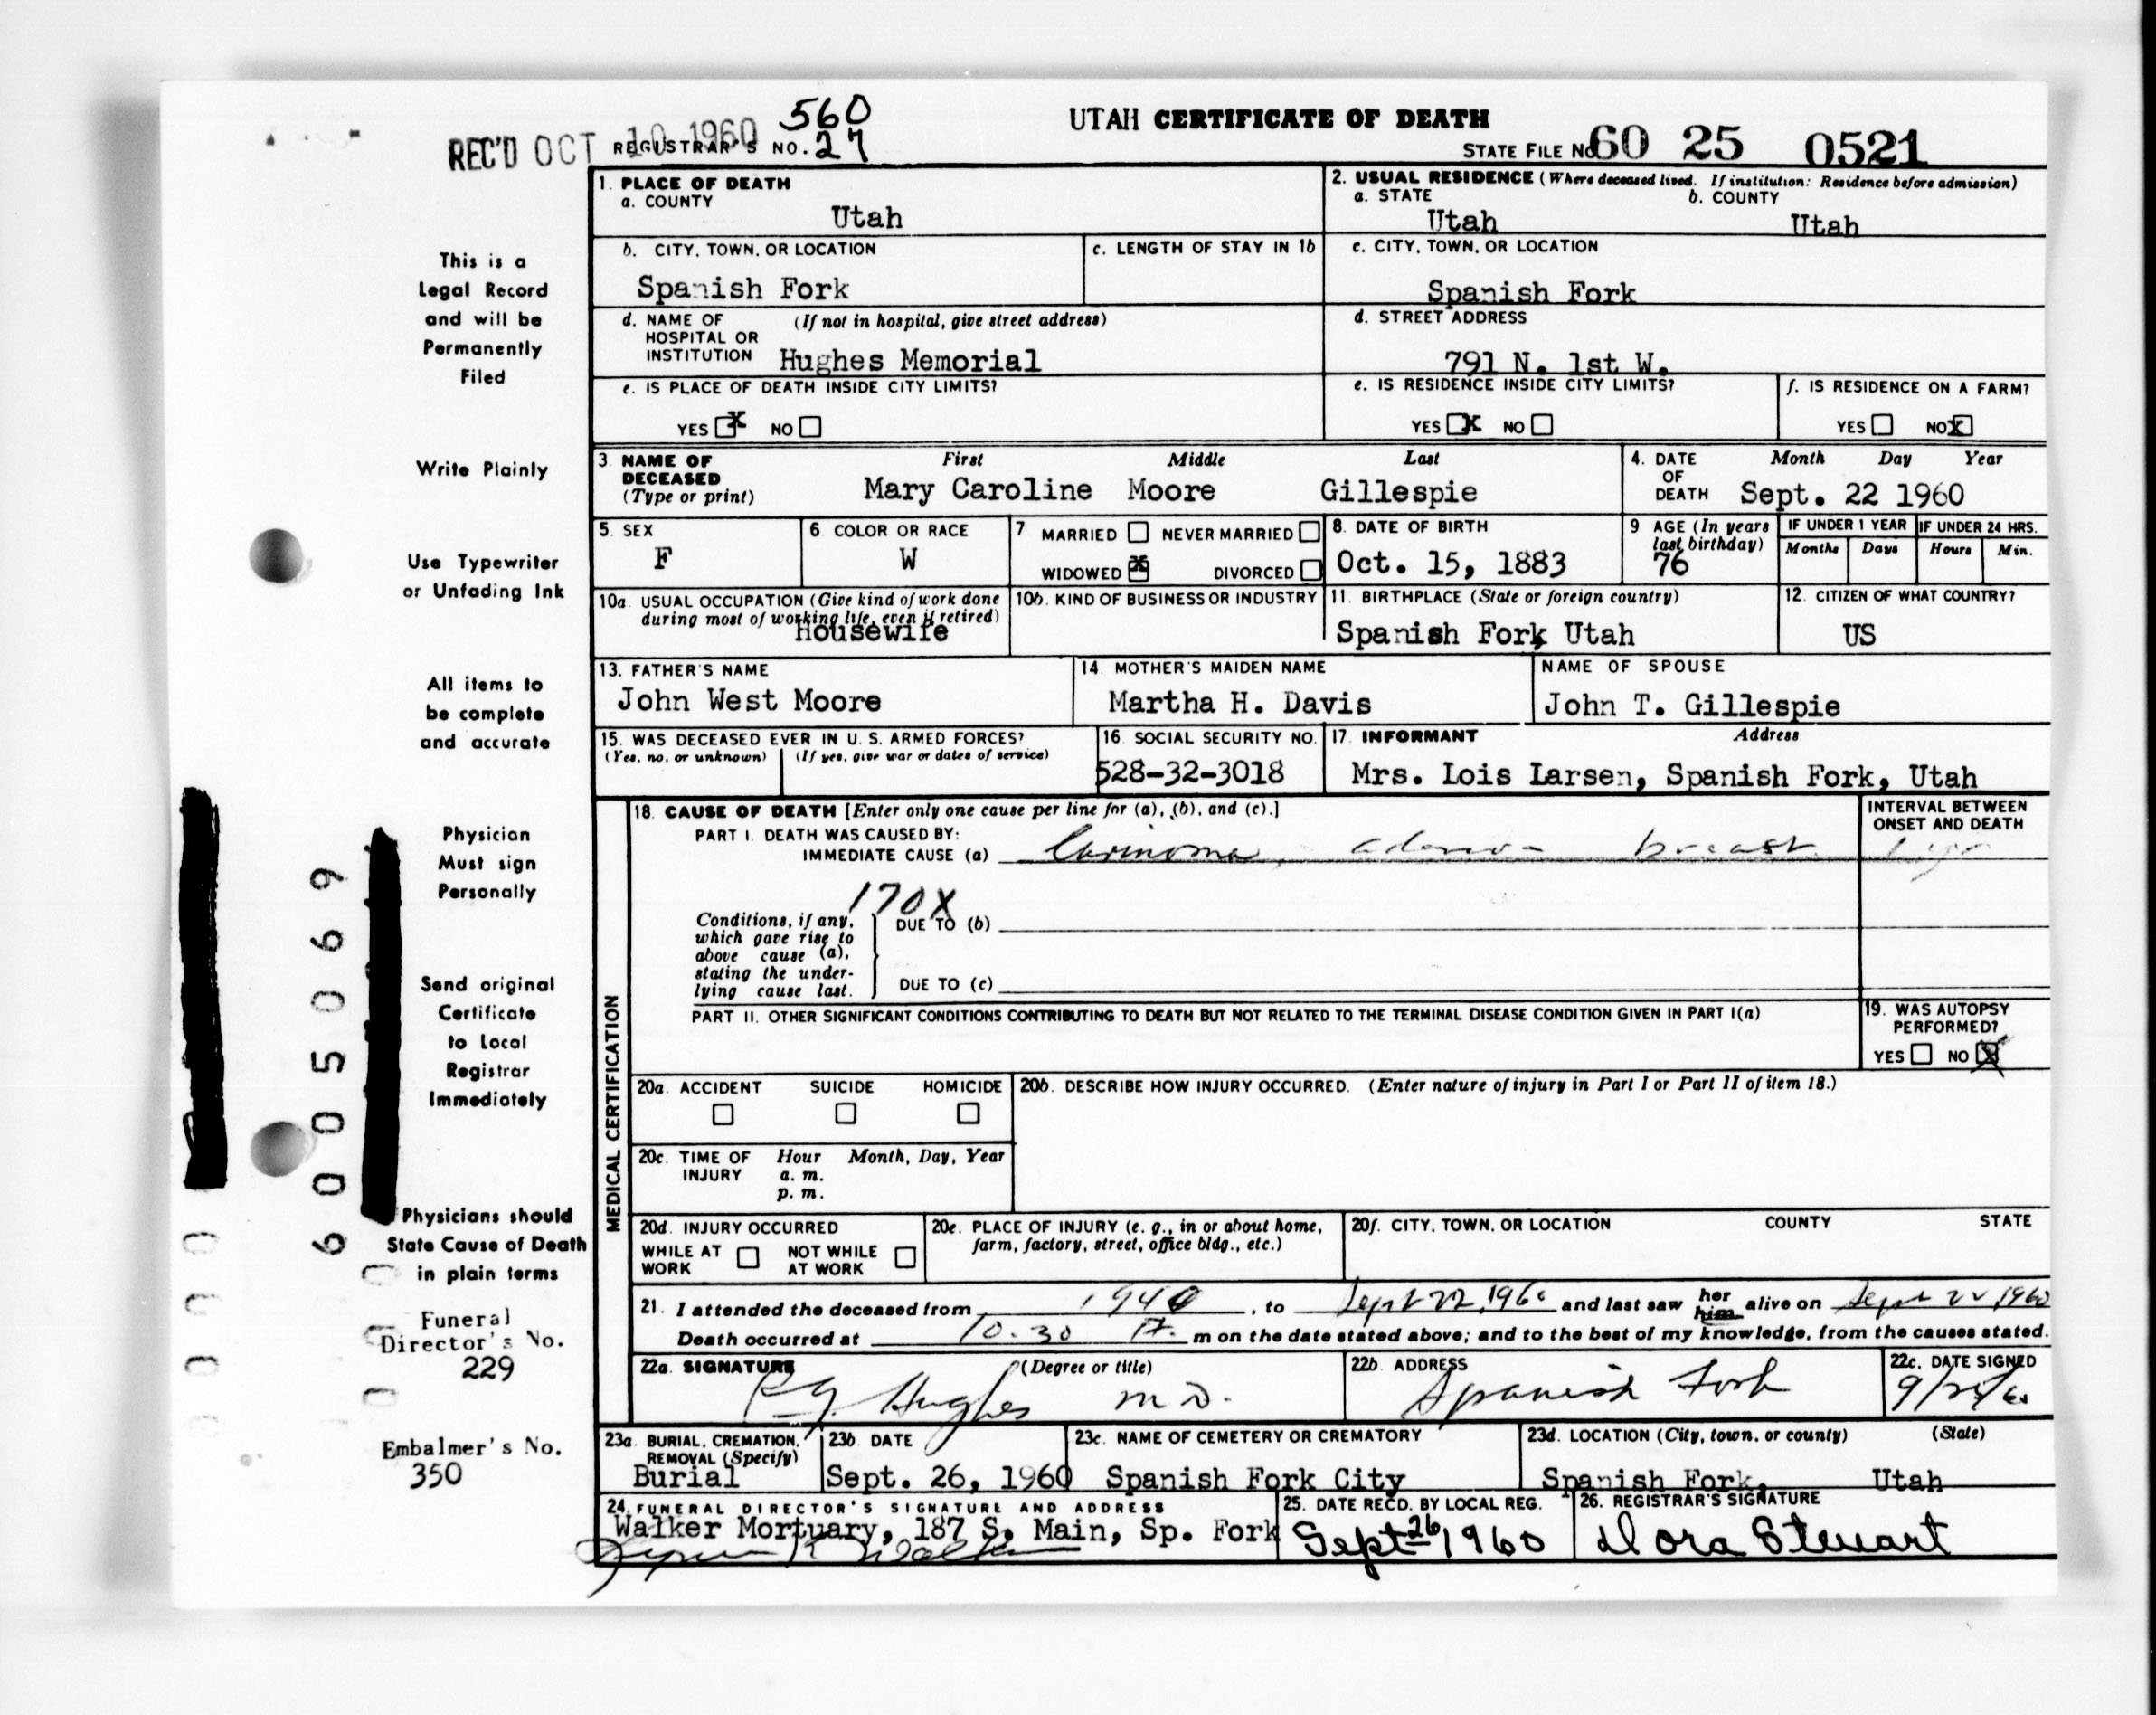 560
UTAH CERTIFICATE OF DEATH
REC'D OCT 10 1960 REGISTRAR'S NO. 27
STATE FILE NO. 60 25 0521
1. PLACE OF DEATH
a. COUNTY
Utah
2. USUAL RESIDENCE (Where deceased lived. If institution: Residence before admission)
a. STATE b. COUNTY
Utah Utah
b. CITY, TOWN, OR LOCATION
Spanish Fork
c. LENGTH OF STAY IN 1b
c. CITY, TOWN, OR LOCATION
Spanish Fork
d. NAME OF (If not in hospital, give street address)
HOSPITAL OR
INSTITUTION Hughes Memorial
d. STREET ADDRESS
791 N. 1st W.
e. IS PLACE OF DEATH INSIDE CITY LIMITS?
YES X NO
e. IS RESIDENCE INSIDE CITY LIMITS?
YES X NO
f. IS RESIDENCE ON A FARM?
YES NO X
3. NAME OF DECEASED (Type or print)
First Middle Last
Mary Caroline Moore Gillespie
4. DATE OF DEATH Month Day Year
Sept. 22 1960
5. SEX
F
6. COLOR OR RACE
W
7 MARRIED NEVER MARRIED
WIDOWED X DIVORCED
8. DATE OF BIRTH
Oct. 15, 1883
9 AGE (In years last birthday)
76
IF UNDER 1 YEAR IF UNDER 24 HRS.
Months Days Hours Min.
10a. USUAL OCCUPATION (Give kind of work done during most of working life, even if retired)
Housewife
10b. KIND OF BUSINESS OR INDUSTRY
11. BIRTHPLACE (State or foreign country)
Spanish Fork, Utah
12. CITIZEN OF WHAT COUNTRY?
US
13. FATHER'S NAME
John West Moore
14. MOTHER'S MAIDEN NAME
Martha H. Davis
NAME OF SPOUSE
John T. Gillespie
15. WAS DECEASED EVER IN U. S. ARMED FORCES?
(Yes, no, or unknown) (If yes, give war or dates of service)
16. SOCIAL SECURITY NO.
528-32-3018
17. INFORMANT Address
Mrs. Lois Larsen, Spanish Fork, Utah
MEDICAL CERTIFICATION
18. CAUSE OF DEATH [Enter only one cause per line for (a), (b), and (c).]
PART I. DEATH WAS CAUSED BY:
IMMEDIATE CAUSE (a) Carinoma, adeno- breast
INTERVAL BETWEEN
ONSET AND DEATH
170X
Conditions, if any, which gave rise to above cause (a), stating the under-lying cause last.
DUE TO (b)
DUE TO (c)
PART II. OTHER SIGNIFICANT CONDITIONS CONTRIBUTING TO DEATH BUT NOT RELATED TO THE TERMINAL DISEASE CONDITION GIVEN IN PART I(a)
19. WAS AUTOPSY PERFORMED?
YES NO X
20a. ACCIDENT SUICIDE HOMICIDE
20b. DESCRIBE HOW INJURY OCCURRED. (Enter nature of injury in Part I or Part II of item 18.)
20c. TIME OF INJURY Hour Month, Day, Year
a. m.
p. m.
20d. INJURY OCCURRED
WHILE AT WORK NOT WHILE AT WORK
20e. PLACE OF INJURY (e. g., in or about home, farm, factory, street, office bldg., etc.)
20f. CITY, TOWN, OR LOCATION COUNTY STATE
21. I attended the deceased from 1940, to Sept 22, 1960 and last saw her him alive on Sept 22, 1960
Death occurred at 10.30 A. m on the date stated above; and to the best of my knowledge, from the causes stated.
22a. SIGNATURE (Degree or title)
Hughes M D.
22b. ADDRESS
Spanish Fork
22c. DATE SIGNED
23a. BURIAL, CREMATION, REMOVAL (Specify)
Burial
23b. DATE
Sept. 26, 1960
23c. NAME OF CEMETERY OR CREMATORY
Spanish Fork City
23d. LOCATION (City, town, or county) (State)
Spanish Fork, Utah
24. FUNERAL DIRECTOR'S SIGNATURE AND ADDRESS
Walker Mortuary, 187 S. Main, Sp. Fork
25. DATE RECD. BY LOCAL REG.
Sept 26 1960
26. REGISTRAR'S SIGNATURE
Dora Stewart
This is a
Legal Record
and will be
Permanently
Filed
Write Plainly
Use Typewriter
or Unfading Ink
All items to
be complete
and accurate
Physician
Must sign
Personally
Send original
Certificate
to Local
Registrar
Immediately
Physicians should
State Cause of Death
in plain terms
Funeral
Director's No.
229
Embalmer's No.
350
6005069